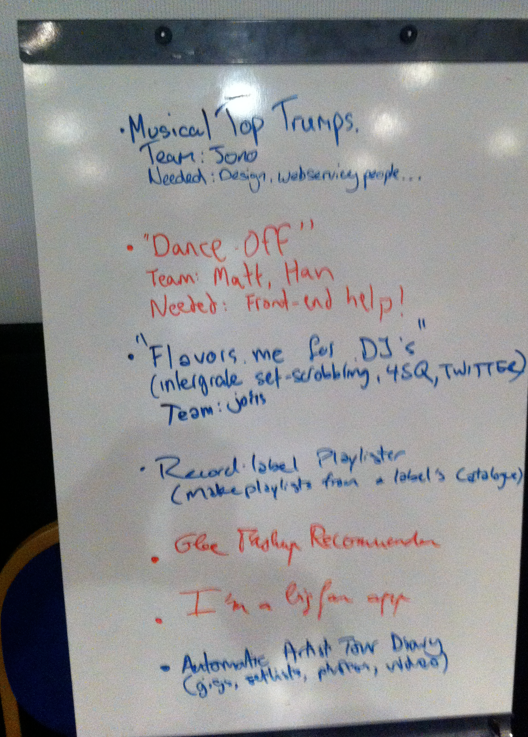 • Musical Top Trumps.
Team: Jono
Needed: Design, webservicey people...
• "Dance Off"
Team: Matt, Han
Needed: Front-end help!
• "Flavors.me for DJ's"
(intergrale set-scrobbling, 4SQ, TWITTER)
Team:
• Record-label Playlister
(make playlists from a label's catalogue)
• Glee Mashup Recommender
• I'm a big fan app
• Automatic Artist Tour Diary
(gigs, setlists, photos, video)